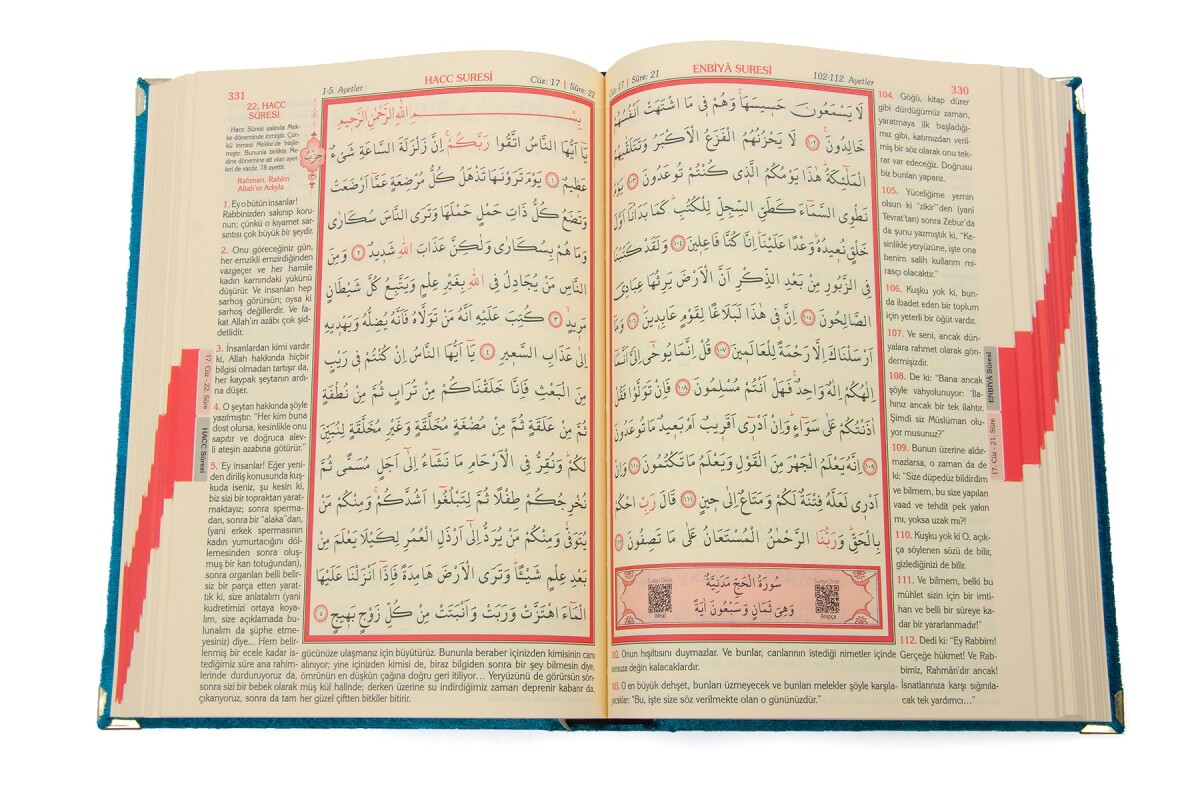 ENBİYÂ SURESİ
Cüz: 17 | Sûre: 21
102-112. Ayetler
330
لَا يَسْمَعُونَ حَسِيسَهَا وَهُمْ فِى مَا اشْتَهَتْ اَنْفُسُهُمْ
خَالِدُونَ ﴿١٠٢﴾ لَا يَحْزُنُهُمُ الْفَزَعُ الْاَكْبَرُ وَتَتَلَقّٰيهُمُ
الْمَلٰٓئِكَةُ هٰذَا يَوْمُكُمُ الَّذِى كُنْتُمْ تُوعَدُونَ ﴿١٠٣﴾ يَوْمَ
نَطْوِى السَّمَٓاءَ كَطَىِّ السِّجِلِّ لِلْكُتُبِ كَمَا بَدَاْنَٓا اَوَّلَ
خَلْقٍ نُعِيدُهُ وَعْدًا عَلَيْنَا اِنَّا كُنَّا فَاعِلِينَ ﴿١٠٤﴾ وَلَقَدْ كَتَبْنَا
فِى الزَّبُورِ مِنْ بَعْدِ الذِّكْرِ اَنَّ الْاَرْضَ يَرِثُهَا عِبَادِىَ
الصَّالِحُونَ ﴿١٠٥﴾ اِنَّ فِى هٰذَا لَبَلَاغًا لِقَوْمٍ عَابِدِينَ ﴿١٠٦﴾ وَمَٓا
اَرْسَلْنَاكَ اِلَّا رَحْمَةً لِلْعَالَمِينَ ﴿١٠٧﴾ قُلْ اِنَّمَا يُوحٰٓى اِلَىَّ اَنَّمَٓا
اِلٰهُكُمْ اِلٰهٌ وَاحِدٌ فَهَلْ اَنْتُمْ مُسْلِمُونَ ﴿١٠٨﴾ فَاِنْ تَوَلَّوْا فَقُلْ
اٰذَنْتُكُمْ عَلٰى سَوَٓاءٍ وَاِنْ اَدْرِٓى اَقَرِيبٌ اَمْ بَعِيدٌ مَا تُوعَدُونَ
﴿١٠٩﴾ اِنَّهُ يَعْلَمُ الْجَهْرَ مِنَ الْقَوْلِ وَيَعْلَمُ مَا تَكْتُمُونَ ﴿١١٠﴾ وَاِنْ
اَدْرِى لَعَلَّهُ فِتْنَةٌ لَكُمْ وَمَتَاعٌ اِلٰى حِينٍ ﴿١١١﴾ قَالَ رَبِّ احْكُمْ
بِالْحَقِّ وَرَبُّنَا الرَّحْمٰنُ الْمُسْتَعَانُ عَلٰى مَا تَصِفُونَ ﴿١١٢﴾
سُورَةُ الْحَجِّ مَدَنِيَّةٌ
وَهِىَ ثَمَانٍ وَسَبْعُونَ اٰيَةً
102. Onun hışıltısını duymazlar. Ve bunlar, canlarının istediği nimetler içinde
sonsuza değin kalacaklardır.
103. O en büyük dehşet, bunları üzmeyecek ve bunları melekler şöyle karşıla-
yacaklar: "Bu, işte size söz verilmekte olan o gününüzdür."
104. Göğü, kitap dürer
gibi dürdüğümüz zaman,
yaratmaya ilk başladığı-
mız gibi, katımızdan veril-
miş bir söz olarak onu tek-
rar var edeceğiz. Doğrusu
biz bunları yaparız.
105. Yüceliğime yemin
olsun ki "zikir"den (yani
Tevrat'tan) sonra Zebur'da
da şunu yazmıştık ki, "Ke-
sinlikle yeryüzüne, işte ona
benim salih kullarım mi-
rasçı olacaktır."
106. Kuşku yok ki, bun-
da ibadet eden bir toplum
için yeterli bir öğüt vardır.
107. Ve seni, ancak dün-
yalara rahmet olarak gön-
dermişizdir.
108. De ki: "Bana ancak
şöyle vahyolunuyor: "İla-
hınız ancak bir tek ilahtır.
Şimdi siz Müslüman olu-
yor musunuz?"
109. Bunun üzerine aldır-
mazlarsa, o zaman da de
ki: "Size düpedüz bildirdim
ve bilmem, bu size yapılan
vaad ve tehdit pek yakın
mı, yoksa uzak mı?!
110. Kuşku yok ki O, açık-
ça söylenen sözü de bilir,
gizlediğinizi de bilir.
111. Ve bilmem, belki bu
mühlet sizin için bir imti-
han ve belli bir süreye ka-
dar bir yararlanmadır!"
112. Dedi ki: "Ey Rabbim!
Gerçeğe hükmet! Ve Rab-
bimiz, Rahmân'dır ancak!
İsnatlarınıza karşı sığınıla-
cak tek yardımcı..."
ENBİYÂ Sûresi
17. Cüz - 21. Sûre
331
1-5. Ayetler
HACC SURESİ
Cüz: 17 | Sûre: 22
بِسْمِ اللّٰهِ الرَّحْمٰنِ الرَّحِيمِ
يَٓا اَيُّهَا النَّاسُ اتَّقُوا رَبَّكُمْ اِنَّ زَلْزَلَةَ السَّاعَةِ شَىْءٌ
عَظِيمٌ ﴿١﴾ يَوْمَ تَرَوْنَهَا تَذْهَلُ كُلُّ مُرْضِعَةٍ عَمَّٓا اَرْضَعَتْ
وَتَضَعُ كُلُّ ذَاتِ حَمْلٍ حَمْلَهَا وَتَرَى النَّاسَ سُكَارٰى
وَمَا هُمْ بِسُكَارٰى وَلٰكِنَّ عَذَابَ اللّٰهِ شَدِيدٌ ﴿٢﴾ وَمِنَ
النَّاسِ مَنْ يُجَادِلُ فِى اللّٰهِ بِغَيْرِ عِلْمٍ وَيَتَّبِعُ كُلَّ شَيْطَانٍ
مَرِيدٍ ﴿٣﴾ كُتِبَ عَلَيْهِ اَنَّهُ مَنْ تَوَلَّاهُ فَاَنَّهُ يُضِلُّهُ وَيَهْدِيهِ
اِلٰى عَذَابِ السَّعِيرِ ﴿٤﴾ يَٓا اَيُّهَا النَّاسُ اِنْ كُنْتُمْ فِى رَيْبٍ
مِنَ الْبَعْثِ فَاِنَّا خَلَقْنَاكُمْ مِنْ تُرَابٍ ثُمَّ مِنْ نُطْفَةٍ
ثُمَّ مِنْ عَلَقَةٍ ثُمَّ مِنْ مُضْغَةٍ مُخَلَّقَةٍ وَغَيْرِ مُخَلَّقَةٍ لِنُبَيِّنَ
لَكُمْ وَنُقِرُّ فِى الْاَرْحَامِ مَا نَشَٓاءُ اِلٰٓى اَجَلٍ مُسَمًّى ثُمَّ
نُخْرِجُكُمْ طِفْلًا ثُمَّ لِتَبْلُغُٓوا اَشُدَّكُمْ وَمِنْكُمْ مَنْ
يُتَوَفّٰى وَمِنْكُمْ مَنْ يُرَدُّ اِلٰٓى اَرْذَلِ الْعُمُرِ لِكَيْلَا يَعْلَمَ مِنْ
بَعْدِ عِلْمٍ شَيْـًٔا وَتَرَى الْاَرْضَ هَامِدَةً فَاِذَٓا اَنْزَلْنَا عَلَيْهَا
الْمَٓاءَ اهْتَزَّتْ وَرَبَتْ وَاَنْبَتَتْ مِنْ كُلِّ زَوْجٍ بَهِيجٍ ﴿٥﴾
حزب
22. HACC
SÛRESİ
Hacc Sûresi aslında Mek-
ke döneminde inmiştir. Çün-
kü inmesi Mekke'de başla-
mıştır. Bununla birlikte Me-
dine dönemine ait olan ayet-
leri de vardır. 78 ayettir.
Rahman, Rahim
Allah'ın Adıyla
1. Ey o bütün insanlar!
Rabbinizden sakınıp koru-
nun; çünkü o kıyamet sar-
sıntısı çok büyük bir şeydir.
2. Onu göreceğiniz gün,
her emzikli emzirdiğinden
vazgeçer ve her hamile
kadın karnındaki yükünü
düşürür. Ve insanları hep
sarhoş görürsün; oysa ki
sarhoş değillerdir. Ve fa-
kat Allah'ın azâbı çok şid-
detlidir.
3. İnsanlardan kimi vardır
ki, Allah hakkında hiçbir
bilgisi olmadan tartışır da,
her kaypak şeytanın ardı-
na düşer.
4. O şeytan hakkında şöyle
yazılmıştır: "Her kim buna
dost olursa, kesinlikle onu
sapıtır ve doğruca alev-
li ateşin azabına götürür."
5. Ey insanlar! Eğer yeni-
den diriliş konusunda kuş-
kuda iseniz, şu kesin ki,
biz sizi bir topraktan yarat-
maktayız; sonra sperma-
dan, sonra bir "alaka"dan,
(yani erkek spermasının
kadın yumurtacığını döl-
lemesinden sonra oluş-
muş bir kan totuğundan),
sonra organları belli belir-
siz bir parça etten yarat-
tık ki, size anlatalım (yani
kudretimizi ortaya koya-
lım, size açıklamada bu-
lunalım da şüphe etme-
yesiniz) diye... Hem belir-
lenmiş bir ecele kadar is-
tediğimiz süre ana rahim-
lerinde durduruyoruz da,
sonra sizi bir bebek olarak
çıkarıyoruz, sonra da tam
gücünüze ulaşmanız için büyütürüz. Bununla beraber içinizden kimisinin canı
alınıyor; yine içinizden kimisi de, biraz bilgiden sonra bir şey bilmesin diye,
ömrünün en düşkün çağına doğru geri itiliyor... Yeryüzünü de görürsün sön-
müş kül halinde; derken üzerine su indirdiğimiz zaman deprenir kabarır da,
her güzel çiftten bitkiler bitirir.
17. Cüz - 22. Sûre
HACC Sûresi